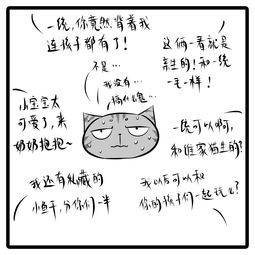 一统，你竟然背着我
连孩子都有了！
这俩一看就是
亲生的！和一统
一毛一样！
不是…
我没有…
搞什么鬼…
小宝宝太
可爱了，来
奶奶抱抱~
一统可以啊，
和谁家猫生的？
我还有私藏的
小鱼干，分你们一半
我以后可以和
你的孩子们一起玩么？